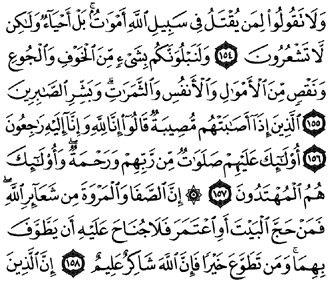 وَلَا تَقُولُوا۟ لِمَن يُقْتَلُ فِى سَبِيلِ ٱللَّهِ أَمْوَٰتٌۢ ۚ بَلْ أَحْيَآءٌ وَلَٰكِن
لَّا تَشْعُرُونَ ١٥٤ وَلَنَبْلُوَنَّكُم بِشَىْءٍ مِّنَ ٱلْخَوْفِ وَٱلْجُوعِ
وَنَقْصٍ مِّنَ ٱلْأَمْوَٰلِ وَٱلْأَنفُسِ وَٱلثَّمَرَٰتِ ۗ وَبَشِّرِ ٱلصَّٰبِرِينَ
١٥٥ ٱلَّذِينَ إِذَآ أَصَٰبَتْهُم مُّصِيبَةٌ قَالُوٓا۟ إِنَّا لِلَّهِ وَإِنَّآ إِلَيْهِ رَٰجِعُونَ
١٥٦ أُو۟لَٰٓئِكَ عَلَيْهِمْ صَلَوَٰتٌ مِّن رَّبِّهِمْ وَرَحْمَةٌ ۖ وَأُو۟لَٰٓئِكَ
هُمُ ٱلْمُهْتَدُونَ ١٥٧ ۞ إِنَّ ٱلصَّفَا وَٱلْمَرْوَةَ مِن شَعَآئِرِ ٱللَّهِ ۖ
فَمَنْ حَجَّ ٱلْبَيْتَ أَوِ ٱعْتَمَرَ فَلَا جُنَاحَ عَلَيْهِ أَن يَطَّوَّفَ
بِهِمَا ۚ وَمَن تَطَوَّعَ خَيْرًا فَإِنَّ ٱللَّهَ شَاكِرٌ عَلِيمٌ ١٥٨ إِنَّ ٱلَّذِينَ